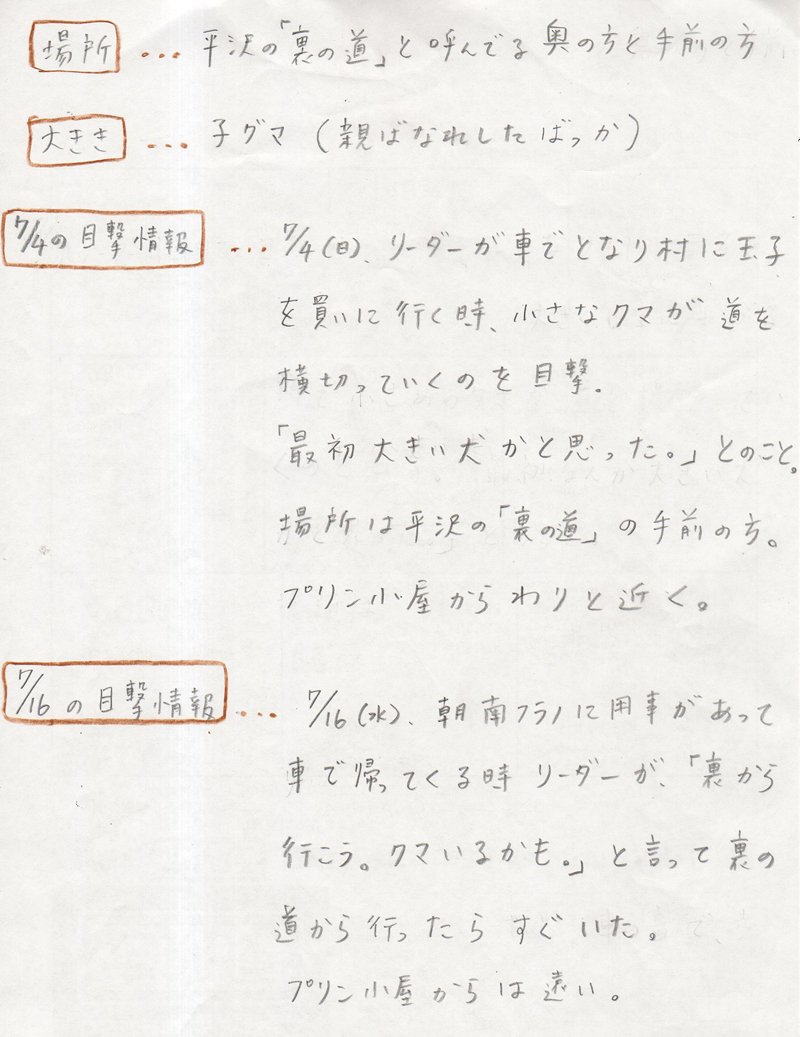 場所 ... 平沢の「裏の道」と呼んでる奥の方と手前の方
大きさ ... 子グマ (親ばなれしたばっか)
7/4の目撃情報 ... 7/4(日)、リーダーが車でとなり村に玉子
を買いに行く時、小さなクマが道を
横切っていくのを目撃。
「最初大きい犬かと思った。」とのこと。
場所は平沢の「裏の道」の手前の方。
プリン小屋からわりと近く。
7/16の目撃情報 ... 7/16(水)、朝南フラノに用事があって
車で帰ってくる時リーダーが、「裏から
行こう。クマいるかも。」と言って裏の
道から行ったらすぐいた。
プリン小屋からは遠い。